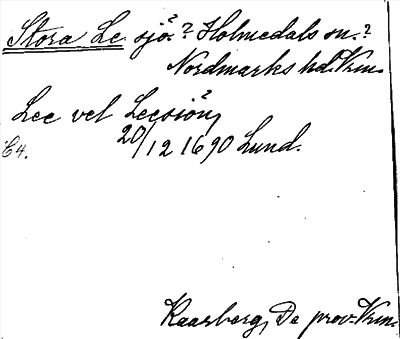 Stora Le sjö? Holmedals sn.?
Nordmarks hd. Vrm.
Lee vel Leesiön,
E4. 20/12 1690 Lund.
Kaarberg, De prov. Vrm.